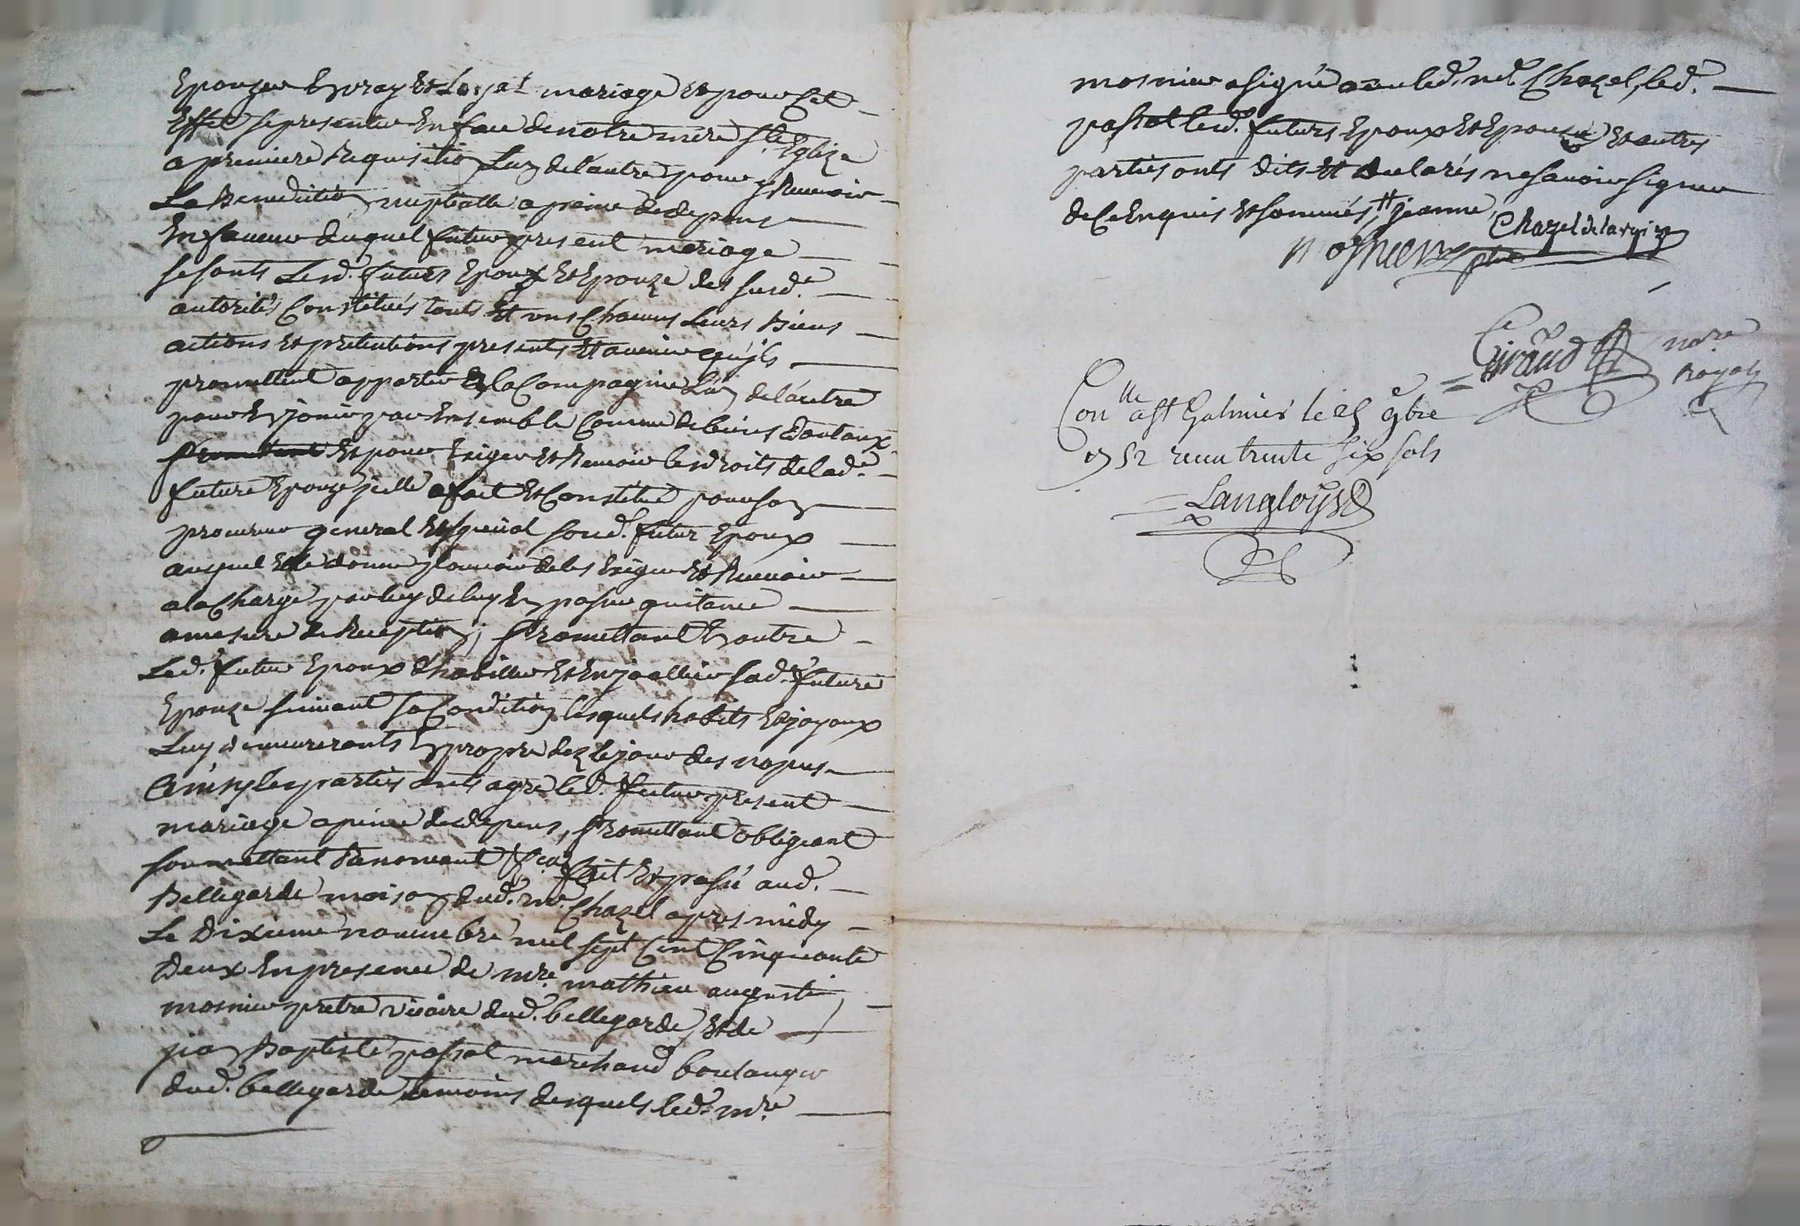 Epouzer En vray Et Loyal mariage Et pour Cet
Effet se presenter En face de notre mere Ste Eglize
a premiere Requisition Lun de lautre pour y Recevoir
La Benediction nuptialle a peine de depens
En faveur duquel futur present mariage
se sonts Lesd. futurs Epoux Et Epouze des susd.e
autorités Constitués touts Et uns Chacuns Leurs Biens
actions Et pretentions presents Et avenir qu'jls
promettent apporter En la Compagnie L'un de l'autre
pour En jouir par Ensemble Comme de biens dautaux
Et pour Exiger Et Recevoir les droits de lad.e
future Epouze jcelle a fait Et Constitué pour son
procureur general Et special sond. futur Epoux
auquel Elle donne pouvoir de les Exiger Et Recevoir
a la Charge par luy de luy En passer quitance
a mesure de Reception ; Promettant En outre
Led. futur Epoux d'habiller Et Enjoallier sad. future
Epouze suivant sa Condition lesquels habits Et joyaux
Luy demeureronts En propre dez le jour des nopces
Ainsy les parties onts agré led. futur present
mariage a peine de depens, Promettant obligeant
soumettant Renoncant &ca fait Et passé aud.
Bellegarde maison dud. mr. Chazel apres midy
Le Dixieme novembre mil sept Cent Cinquante
Deux En presence de mre. mathieu augustin
mosnier pretre vicaire dud. bellegarde, Et de
jean Baptiste passot marchand boulanger
dud. bellegarde temoins desquels led. mre
mosnier a signé avec led. mr. Chazel, led.
passot lesd. futurs Epoux Et Epouze Et autres
parties onts dits Et declarés ne savoir signer
de Ce Enquis Et sommés # jeanne
Chazel delavgier
Mosnier ptre
Giraud nore
Royal
Con.lle a St Galmier le 25 9bre
1752 recu trente six sols
Langloys